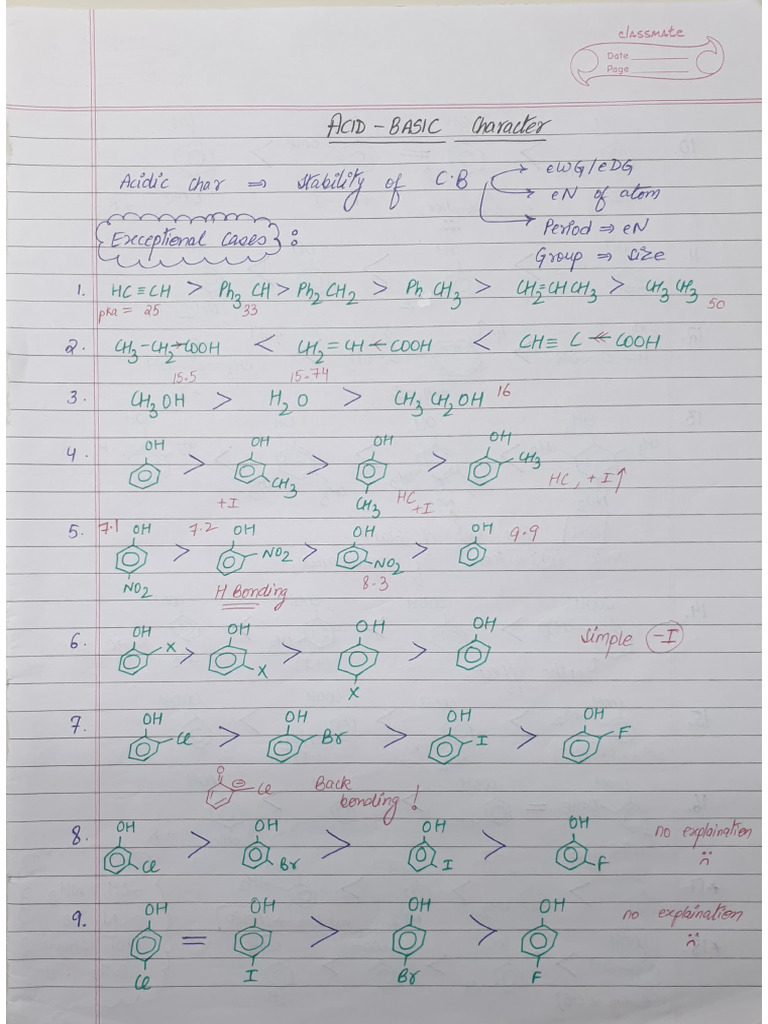 classmate
Date
Page
ACID-BASIC Character
Acidic char ⇒ stability of C.B → eWG/eDG
→ eN of atom
→ Period ⇒ eN
Group ⇒ size
Exceptional Cases :
1. HC≡CH > Ph3CH > Ph2CH2 > PhCH3 > CH2=CHCH3 > CH3CH3
pka = 25 33 50
2. CH3-CH2→COOH < CH2=CH←COOH < CH≡C←COOH
15.5 15.74
3. CH3OH > H2O > CH3CH2OH 16
4. OH > OH > OH > OH
CH3 CH3 CH3
+I HC +I HC, +I↑
5. 7.1 OH > 7.2 OH > OH > OH 9.9
NO2 NO2 NO2
H Bonding 8.3
6. OH > OH > OH > OH simple -I
X X X
7. OH > OH > OH > OH
Cl Br I F
O ⊖ Cl Back bonding!
8. OH > OH > OH > OH no explaination
Cl Br I F
9. OH = OH > OH > OH no explaination
Cl I Br F